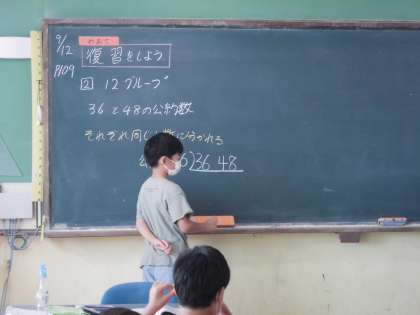 9/12
P109
めあて
復習をしよう
② 12グループ
36と48の公約数
それぞれ同じ に分かれる
6)36 48